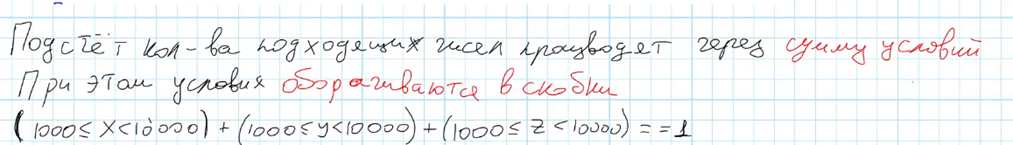 Подсчёт кол-ва подходящих чисел производят через сумму условий
При этом условия оборачиваются в скобки
(1000≤X<10000)+(1000≤y<10000)+(1000≤Z<10000)==1